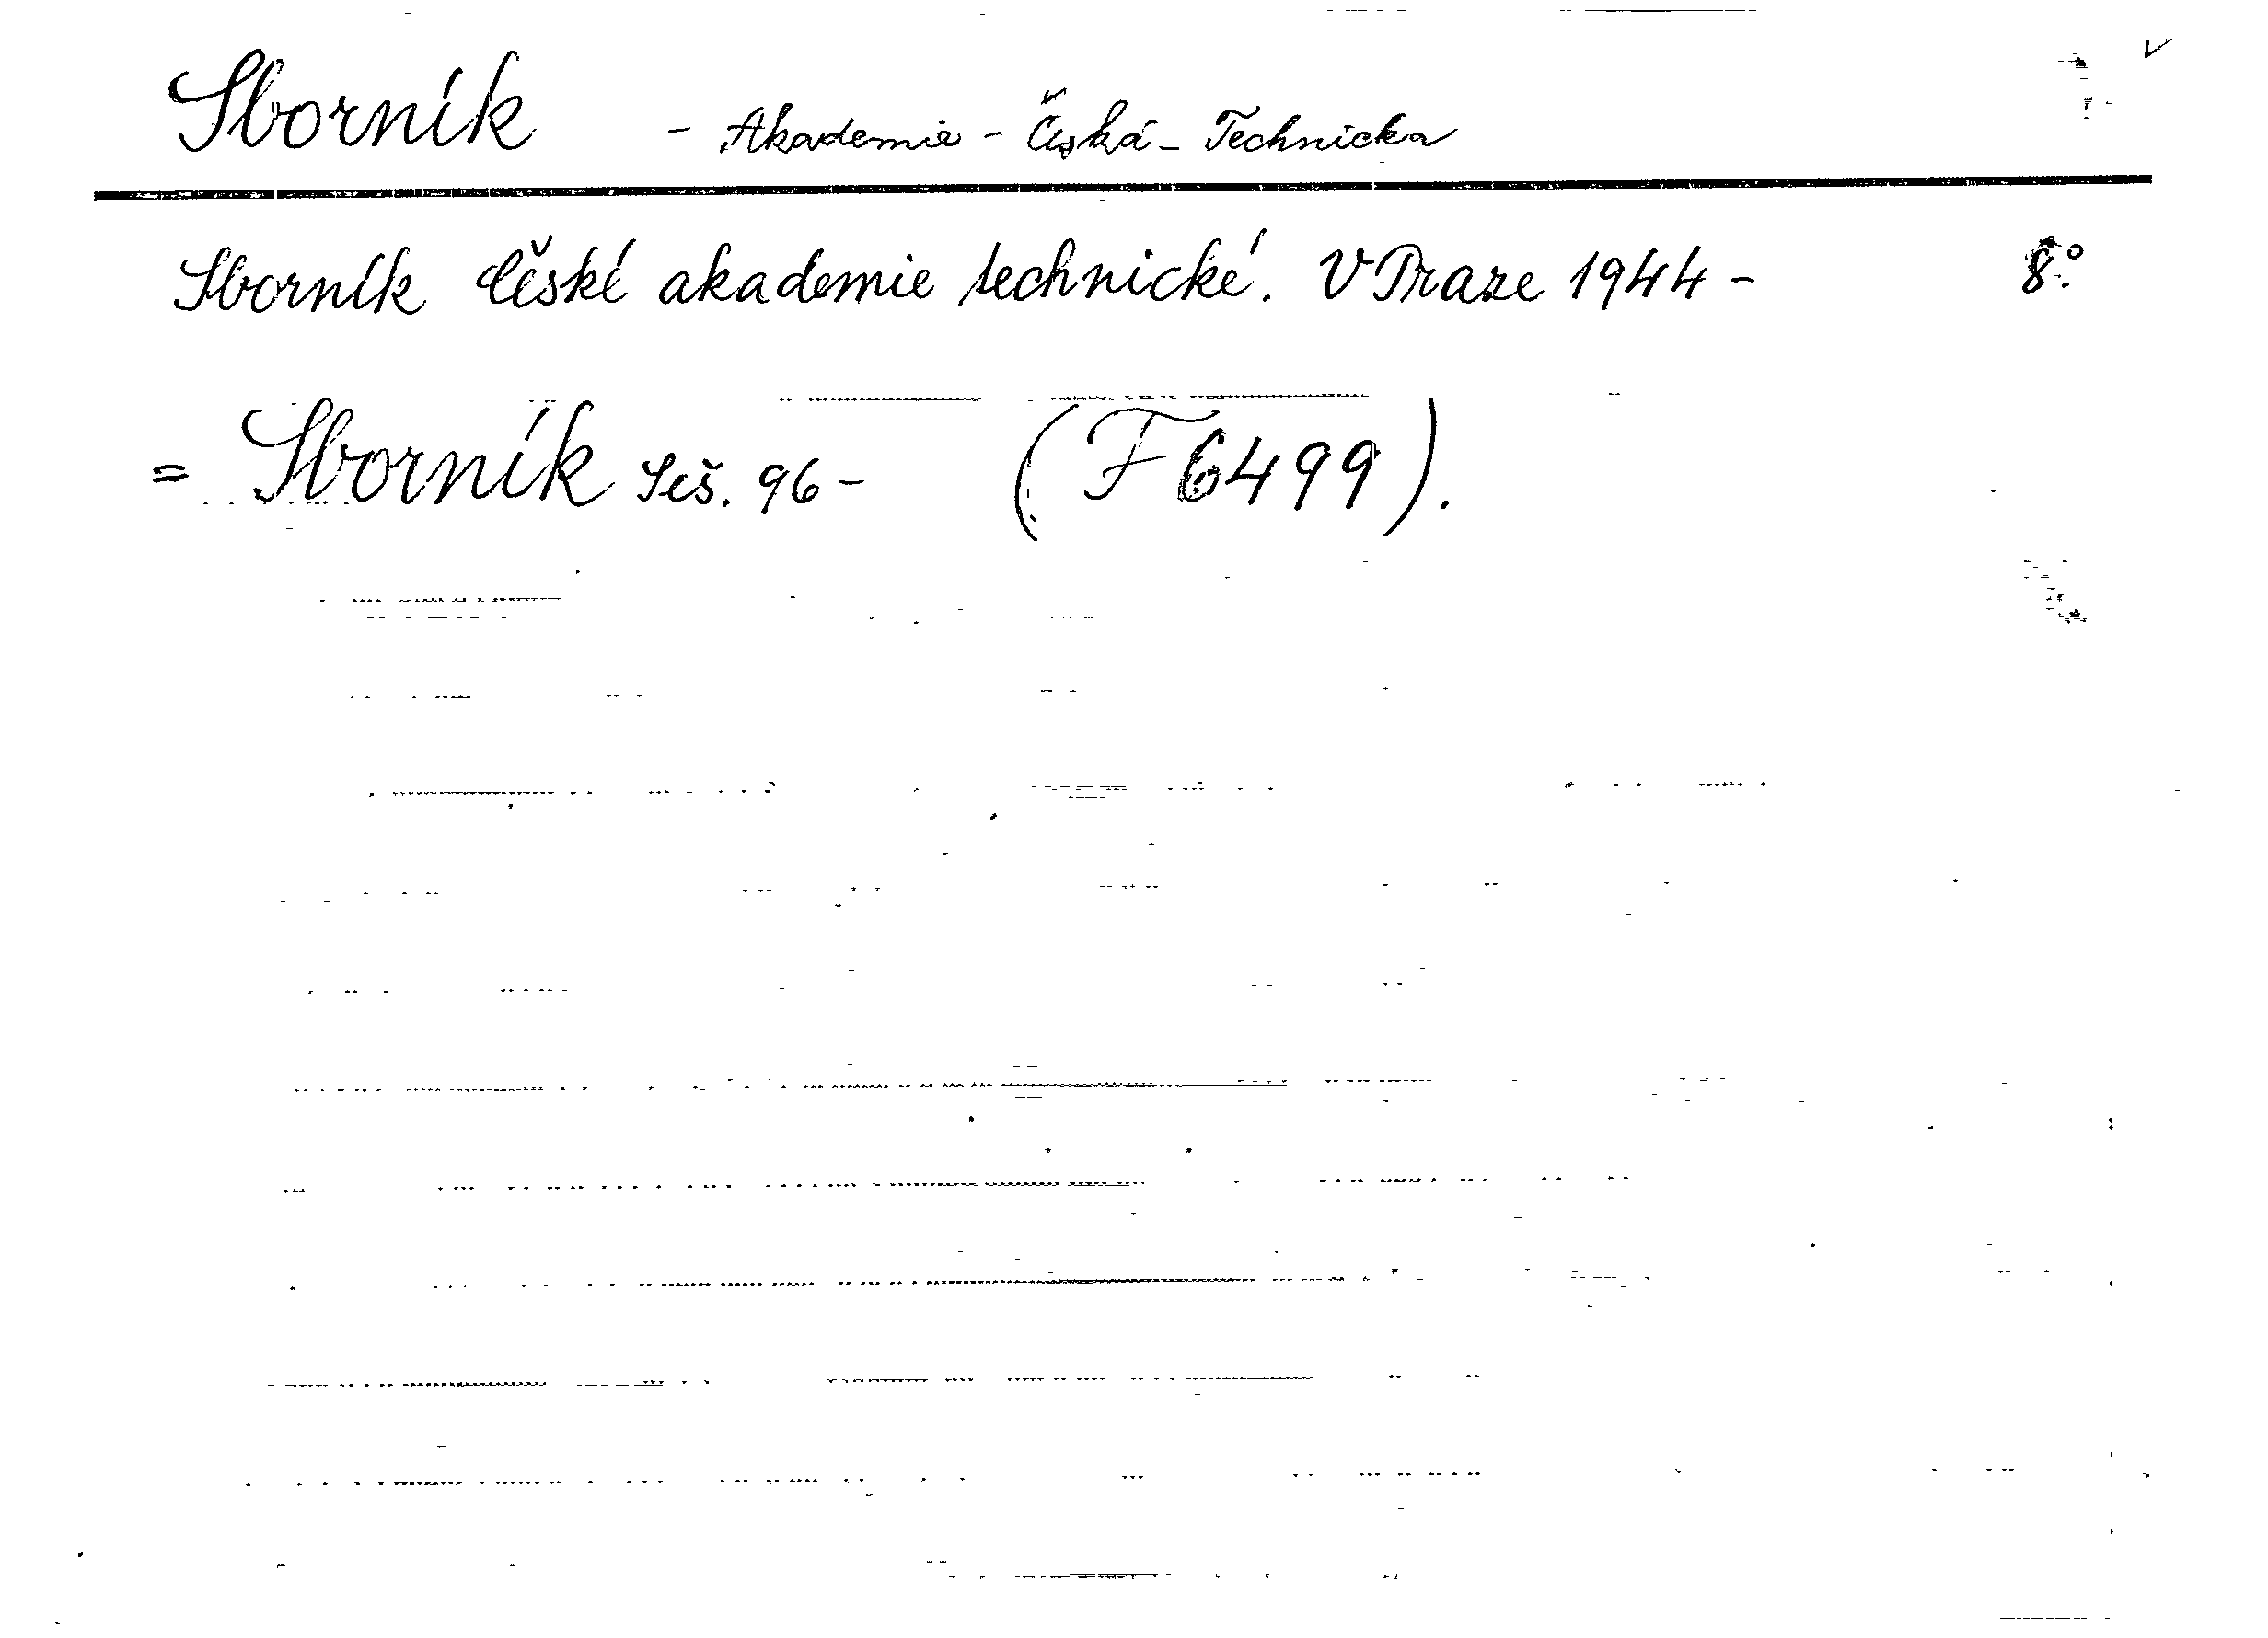 Sborník - Akademie - Česká - Technicka
Sborník České akademie technické. V Praze 1944 - 8°.
= Sborník Seš. 96 - (F 6499).